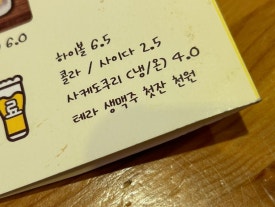 6.0
하이볼 6.5
콜라 / 사이다 2.5
사케도쿠리 (냉/온) 4.0
테라 생맥주 첫잔 천원
료